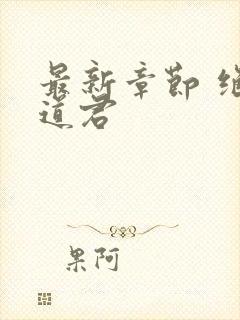 最新章節
道君
果阿